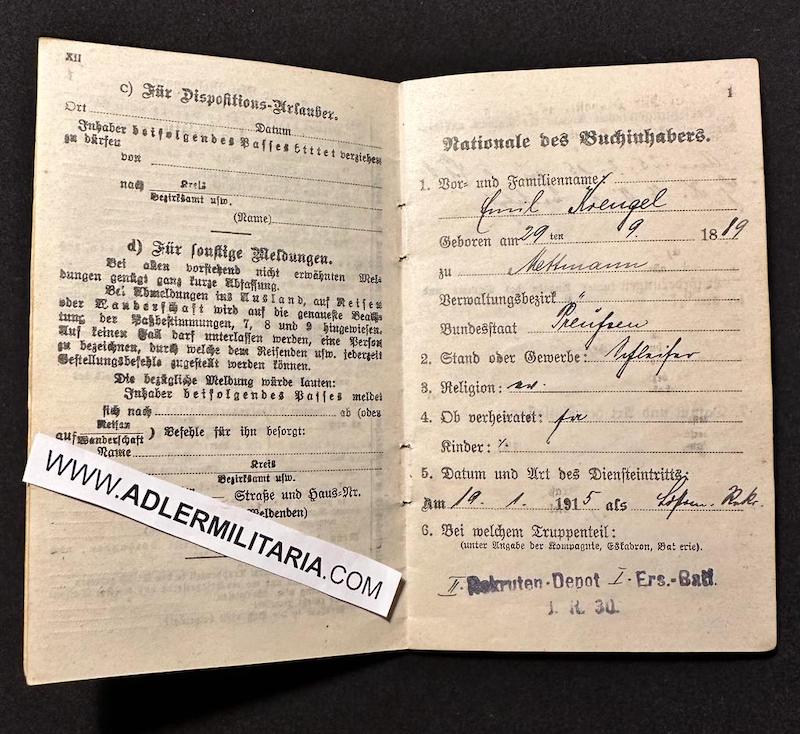 XII
c) Für Dispositions-Urlauber.
Ort Datum
Inhaber beifolgendes Passes bittet verziehen
zu dürfen
von
nach Kreis
Bezirksamt usw.
(Name)
d) Für sonstige Meldungen.
Bei allen vorstehend nicht erwähnten Mel-
dungen genügt ganz kurze Abfassung.
Bei Abmeldungen ins Ausland, auf Reisen
oder Wanderschaft wird auf die genaueste Beach-
tung der Paßbestimmungen, 7, 8 und 9 hingewiesen.
Auf keinen Fall darf unterlassen werden, eine Person
zu bezeichnen, durch welche dem Reisenden usw. jederzeit
Gestellungsbefehle zugestellt werden können.
Die bezügliche Meldung würde lauten:
Inhaber beifolgendes Passes meldet
sich nach ab (oder
Reisen
auf Wanderschaft ) Befehle für ihn besorgt:
Name
Kreis
Bezirksamt usw.
— Straße und Haus-Nr.
Meldenden)
WWW.ADLERMILITARIA.COM
1
Nationale des Buchinhabers.
1. Vor- und Familienname:
Emil Krengel
Geboren am 29 ten 9. 1889
zu Mettmann
Verwaltungsbezirk "
Bundesstaat Preußen
2. Stand oder Gewerbe: Schleifer
3. Religion: ev.
4. Ob verheiratet: ja
Kinder: ∕.
5. Datum und Art des Diensteintritts:
Am 19. 1. 1915 als Rekr.
6. Bei welchem Truppenteil:
(unter Angabe der Kompagnie, Eskadron, Batterie).
II. Rekruten-Depot I. Ers.-Batl.
I. R. 30.